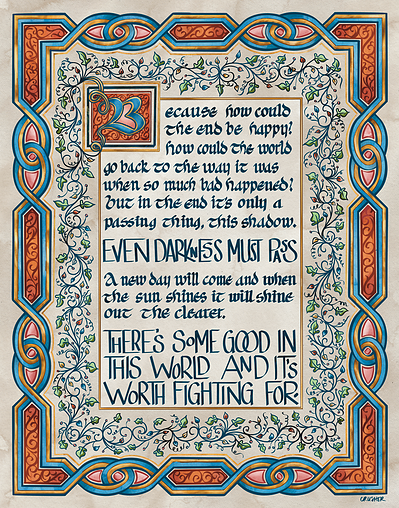 Because how could
the end be happy?
how could the world
go back to the way it was
when so much bad happened?
But in the end it's only a
passing thing, this shadow.
EVEN DARKNESS MUST PASS
A new day will come and when
the sun shines it will shine
out the clearer.
THERE'S SOME GOOD IN
THIS WORLD AND IT'S
WORTH FIGHTING FOR.